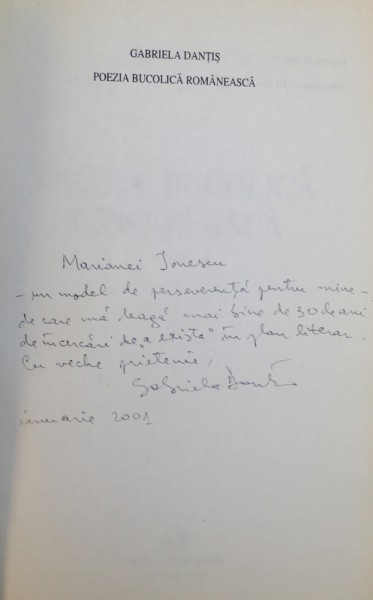 GABRIELA DANȚIȘ
POEZIA BUCOLICĂ ROMÂNEASCĂ
Marianei Ionescu
- un model de perseverență pentru mine -
de care mă leagă mai bine de 30 de ani
de încercări de „a exista" în plan literar.
Cu veche prietenie,
Gabriela Danțiș
ianuarie 2001